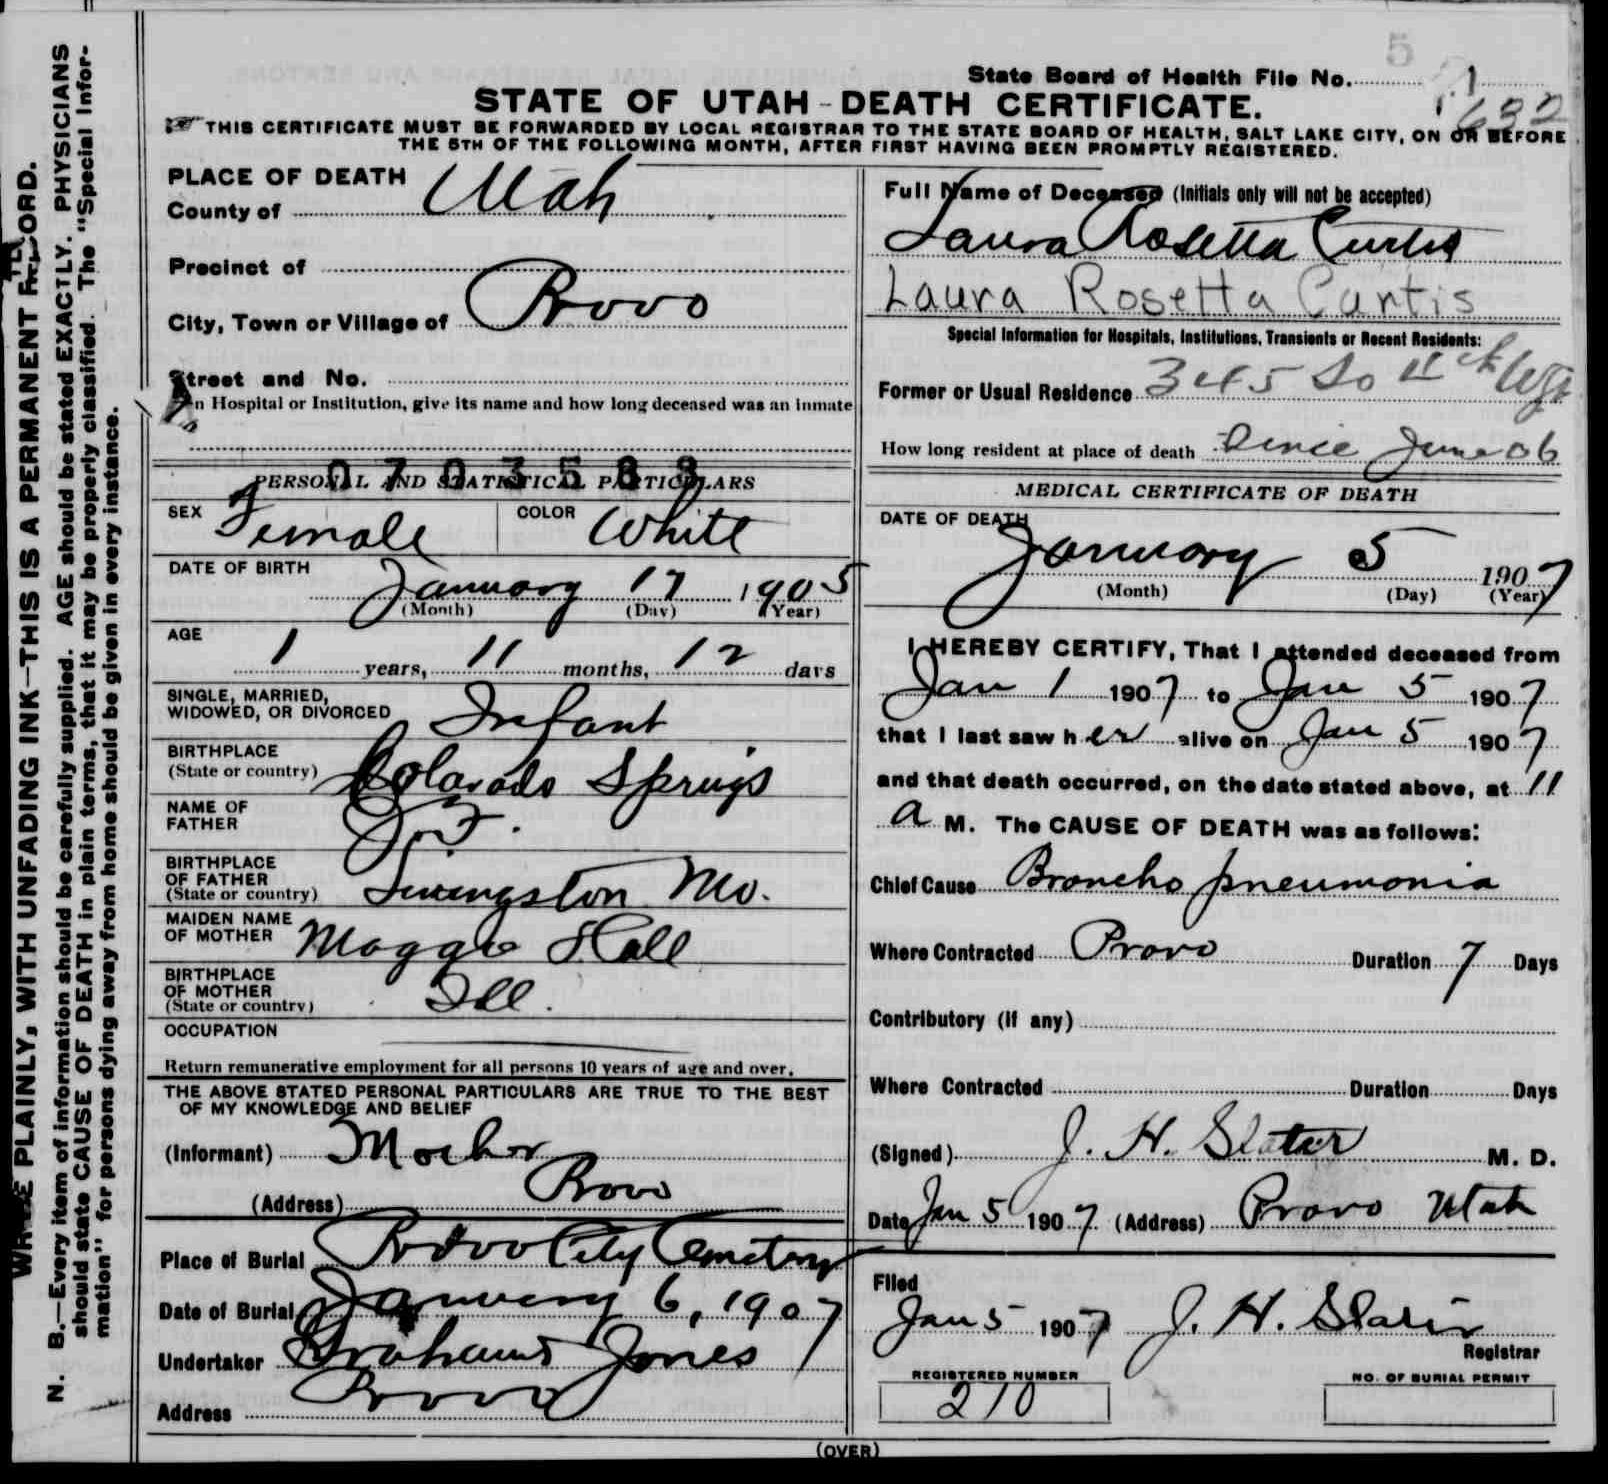 WRITE PLAINLY, WITH UNFADING INK—THIS IS A PERMANENT RECORD.
N. B.—Every item of information should be carefully supplied. AGE should be stated EXACTLY. PHYSICIANS
should state CAUSE OF DEATH in plain terms, that it may be properly classified. The "Special Infor-
mation" for persons dying away from home should be given in every instance.
5
State Board of Health File No. 1
632
STATE OF UTAH-DEATH CERTIFICATE.
THIS CERTIFICATE MUST BE FORWARDED BY LOCAL REGISTRAR TO THE STATE BOARD OF HEALTH, SALT LAKE CITY, ON OR BEFORE
THE 5TH OF THE FOLLOWING MONTH, AFTER FIRST HAVING BEEN PROMPTLY REGISTERED.
PLACE OF DEATH
County of Utah
Precinct of
City, Town or Village of Provo
Street and No.
In Hospital or Institution, give its name and how long deceased was an inmate
0703583
PERSONAL AND STATISTICAL PARTICULARS
SEX Female COLOR White
DATE OF BIRTH January 17 1905
(Month) (Day) (Year)
AGE
1 years, 11 months, 12 days
SINGLE, MARRIED,
WIDOWED, OR DIVORCED Infant
BIRTHPLACE
(State or country) Colorado Springs
NAME OF
FATHER
BIRTHPLACE
OF FATHER
(State or country) Livingston Mo.
MAIDEN NAME
OF MOTHER Maggie Hall
BIRTHPLACE
OF MOTHER
(State or country) Ill.
OCCUPATION
Return remunerative employment for all persons 10 years of age and over.
THE ABOVE STATED PERSONAL PARTICULARS ARE TRUE TO THE BEST
OF MY KNOWLEDGE AND BELIEF
(Informant) Mother
(Address) Provo
Place of Burial Provo City Cemetery
Date of Burial January 6, 1907
Undertaker Jones
Address Provo
Full Name of Deceased (Initials only will not be accepted)
Laura Rosetta Curtis
Laura Rosetta Curtis
Special Information for Hospitals, Institutions, Transients or Recent Residents:
Former or Usual Residence 345 So
How long resident at place of death Since June 06
MEDICAL CERTIFICATE OF DEATH
DATE OF DEATH
January 5 1907
(Month) (Day) (Year)
I HEREBY CERTIFY, That I attended deceased from
Jan 1 1907 to Jan 5 1907
that I last saw her alive on Jan 5 1907
and that death occurred, on the date stated above, at 11
a M. The CAUSE OF DEATH was as follows:
Chief Cause Broncho pneumonia
Where Contracted Provo Duration 7 Days
Contributory (if any)
Where Contracted Duration Days
(Signed) J. H. Slater M. D.
Date Jan 5 1907 (Address) Provo Utah
Filed
Jan 5 1907 J. H. Slater
Registrar
REGISTERED NUMBER
210
NO. OF BURIAL PERMIT
(OVER)